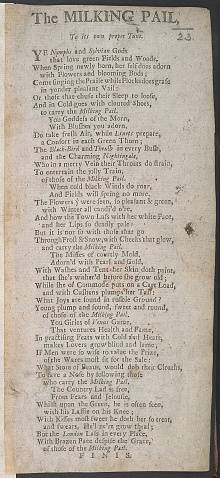 The MILKING PAIL,
To its own proper Tune.
23.
YE Nymphs and Sylvian Gods
that love green Fields and Woods,
When Spring newly born, her self does adorn
with Flowers and blooming Buds;
Come sing in the Praise while Flocks do graze
in yonder pleasant Vail:
Or those that chuse their Sleep to loose,
And in Cold goes with clouted Shoes,
to carry the Milking Pail.
You Goddess of the Morn,
With Blushes you adorn,
Do take fresh Air, while Linnets prepare,
a Consort in each Green Thorn;
The Black-Bird and Thrush in every Bush,
and the Charming Nightingale,
Who in a merry Vein their Throats do strain,
To entertain the jolly Train,
of those of the Milking Pail.
When cold black Winds do roar,
And Fields will spring no more,
The Flowers were seen, so pleasant & green,
with Winter all candi'd o're,
And how the Town Lass with her white Face,
and her Lips so deadly pale:
But it is not so with those that go
Through Frost & Snow, with Cheeks that glow,
and carry the Milking Pail.
The Misses of courtly Mold,
Adorn'd with Pearl and Gold,
With Washes and
Skin doth
that she's wither'd before she grow old;
While she of Commode puts on a Cart Load,
and with Cushens plumps her Tail;
What Joys are found in russit Ground?
Young plump and sound, sweet and round,
of those of the Milking Pail.
You Girles of Venus Game,
That ventures Health and Fame,
In practising Feats with Cold and Heats,
makes Lovers grow blind and lame;
If Men were so wise to value the Prize,
of the Wares most fit for the Sale;
What Store of Beaus, would dob their Cloaths,
To save a Nose by following those
who carry the Milking Pail.
The Country Lad is free,
From Fears and Jelousie,
Whilst upon the Green, he is often seen,
with his Lassie on his Knee;
With Kisses most sweet he doth her so treat,
and swears, He'll
grow
But the London Lass in every Place,
With Brazen Face despise the Grace,
of those of the Milking Pail.
FINIS.